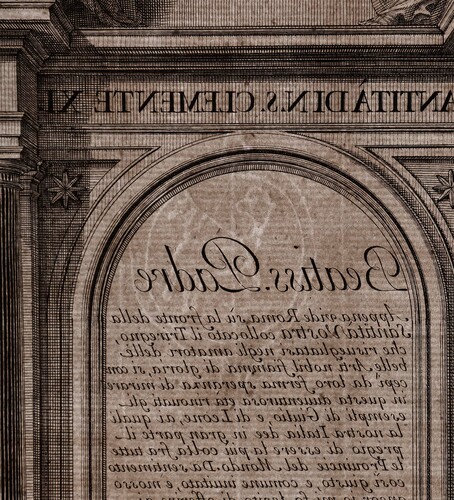 ANTITÀ DI N.S. CLEMENTE XI
Beatiss. Padre
Appena vide Roma sù la fronte della
Santità Vostra collocato il Triregno,
che risvegliatasi negli amatori delle
belle Arti nobil fiamma di gloria, si con
cepì da loro ferma speranza di mirare
in questa rinouati gli
esempi di Giulio, e di Leone, ai quali
la nostra Italia dee in gran parte il
pregio di essere la più colta fra tutte
le Provincie del Mondo. Da sentimento
così giusto, e comune invitato, e mosso